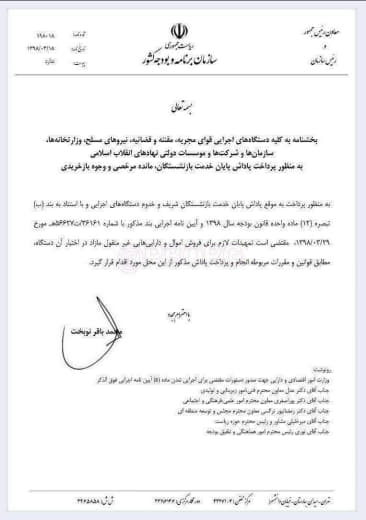 معاون رئیس جمهور
و
رئیس سازمان
ریاست جمهوری
سازمان برنامه و بودجه کشور
شماره نامه: ۱۹۸۰۱۸
تاریخ نامه: ۱۳۹۸/۰۴/۱۸
پیوست: ندارد
بسمه تعالی
بخشنامه به کلیه دستگاه‌های اجرایی قوای مجریه، مقننه و قضائیه، نیروهای مسلح، وزارتخانه‌ها،
سازمان‌ها و شرکت‌ها و موسسات دولتی نهادهای انقلاب اسلامی
به منظور پرداخت پاداش پایان خدمت بازنشستگان، مانده مرخصی و وجوه بازخریدی
به منظور پرداخت به موقع پاداش پایان خدمت بازنشستگان شریف و خدوم دستگاه‌های اجرایی و با استناد به بند (ب)
تبصره (۱۲) ماده واحده قانون بودجه سال ۱۳۹۸ و آیین نامه اجرایی بند مذکور با شماره ۳۶۱۶۱/ت۵۶۶۲۷هـ مورخ
۱۳۹۸/۰۳/۲۹، مقتضی است تمهیدات لازم برای فروش اموال و دارایی‌هایی غیر منقول مازاد در اختیار آن دستگاه،
مطابق قوانین و مقررات مربوطه انجام و پرداخت پاداش مذکور از این محل مورد اقدام قرار گیرد.
با احترام مجدد
محمد باقر نوبخت
رونوشت:
وزارت امور اقتصادی و دارایی جهت صدور دستورات مقتضی برای اجرایی شدن ماده (۵) آیین نامه اجرایی فوق الذکر
جناب آقای دکتر عدل معاون محترم فنی،امور زیربنایی و تولیدی
جناب آقای دکتر پوراصغری معاون محترم امور علمی،فرهنگی و اجتماعی
جناب آقای دکتر رمضانپور نرگسی معاون محترم مجلس و توسعه منطقه ای
جناب آقای میرخلیلی مشاور و رئیس محترم حوزه ریاست
جناب آقای نوری رئیس محترم امور هماهنگی و تلفیق بودجه
تهران - میدان بهارستان - خیابان دانشسرا
مرکز تلفن: ۳۳۲۷۱-۴
دورنگار مرکزی: